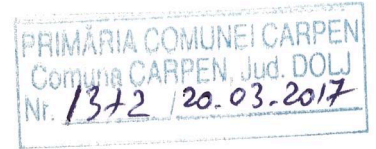 PRIMĂRIA COMUNEI CARPEN
Comuna CARPEN, Jud. DOLJ
Nr. 1372 / 20.03.2017